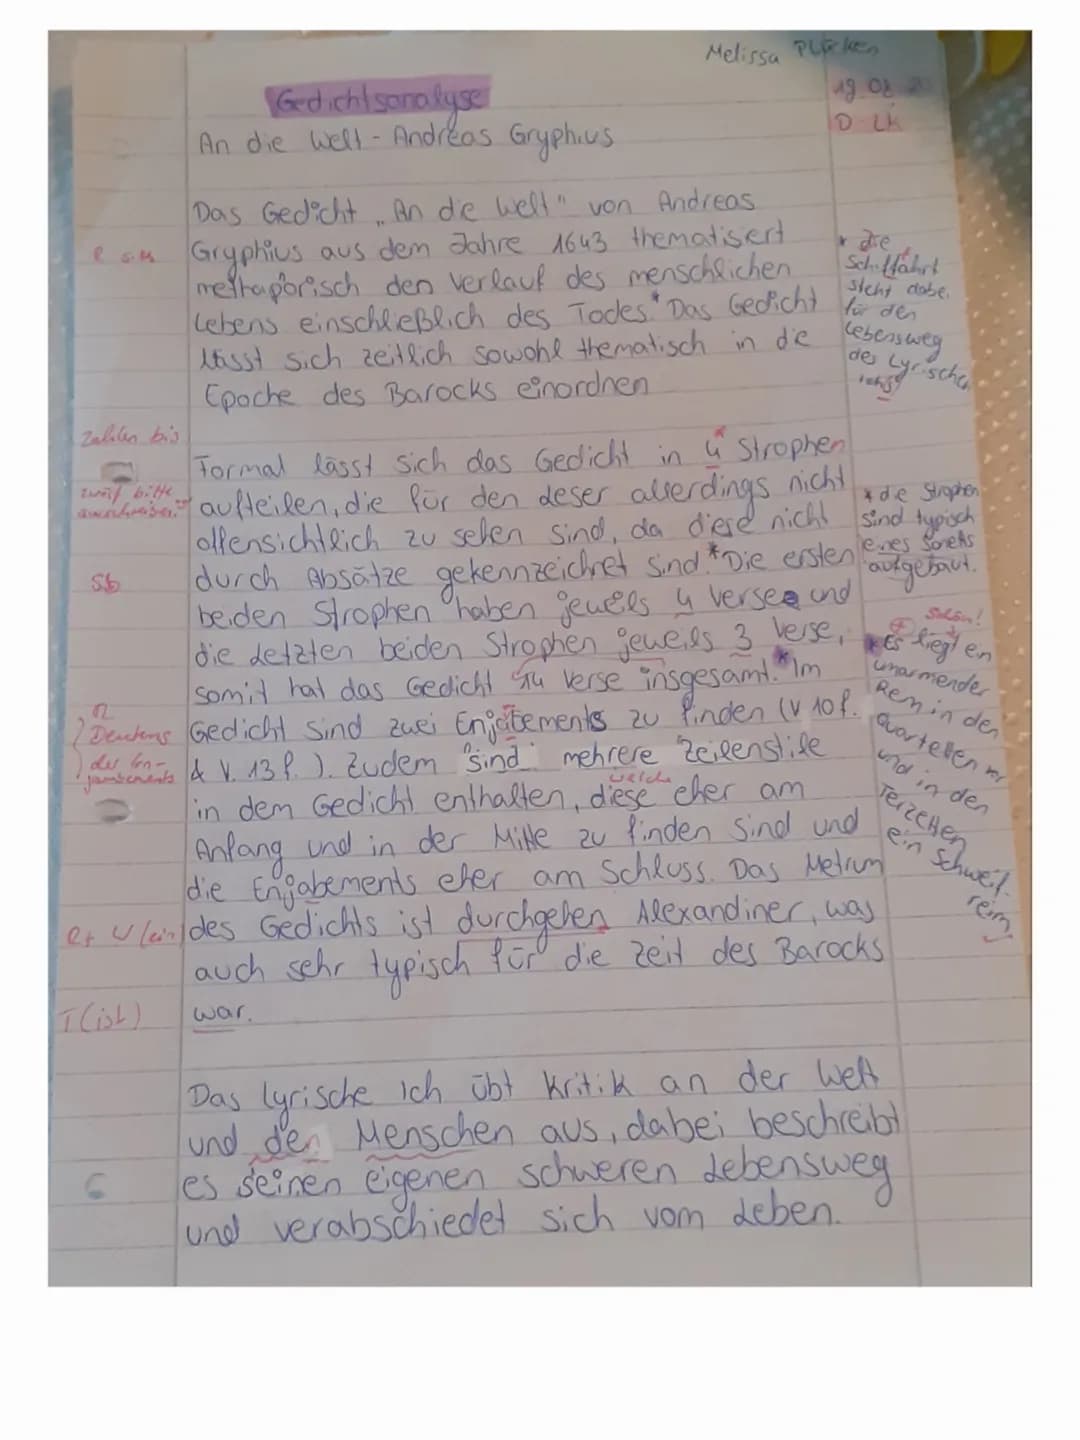 Melissa
Gedichtsanalyse
19.02.
D LK
An die Welt - Andreas Gryphius
Das Gedicht „An die Welt" von Andreas
Gryphius aus dem Jahre 1643 thematisiert
R
methaphorisch den Verlauf des menschlichen
Lebens einschließlich des Todes.* Das Gedicht
lässt sich zeitlich sowohl thematisch in die
Epoche des Barocks einordnen
* die
Schifffahrt
steht dabei
für den
Lebensweg
des Lyrischen
Ichs
Zahlen bis
zwölf bitte
ausschreiben!
Formal lässt sich das Gedicht in 4* Strophen
aufteilen, die für den Leser allerdings nicht
offensichtlich zu sehen sind, da diese nicht
durch Absätze gekennzeichnet sind.* Die ersten
Sb
beiden Strophen haben jeweils 4 Verse und
die letzten beiden Strophen jeweils 3 Verse,
somit hat das Gedicht 14 Verse insgesamt.* Im
Gedicht sind zwei Enjabements zu finden (V 10f.
& V. 13f.). Zudem sind mehrere Zeilenstile
welche
in dem Gedicht enthalten, diese eher am
Anfang und in der Mitte zu finden sind und
die Enjabements eher am Schluss. Das Metrum
des Gedichts ist durchgehen Alexandiner, was
auch sehr typisch für die Zeit des Barocks
war.
* die Strophen
sind typisch
eines Sonetts
aufgebaut.
schön!
* Es liegt ein
umarmender
Reim in den
Quartetten vor
und in den
Terzetten
ein Schweif-
reim
R
Deutens
der En-
jambements
R+ U (ein)
T (ist)
Das lyrische Ich übt Kritik an der Welt
und den Menschen aus, dabei beschreibt
es seinen eigenen schweren Lebensweg
und verabschiedet sich vom Leben.